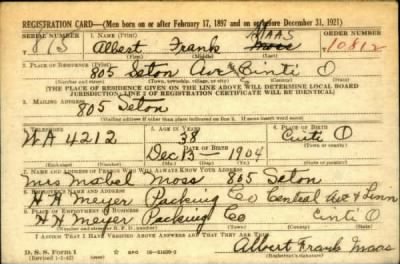 REGISTRATION CARD—(Men born on or after February 17, 1897 and on or before December 31, 1921)
SERIAL NUMBER
1. NAME (Print)
MAAS
ORDER NUMBER
813
Albert Frank Moss
10812
(First) (Middle) (Last)
2. PLACE OF RESIDENCE (Print)
805 Seton Ave Cinti O
(Number and street) (Town, township, village, or city) (County) (State)
(THE PLACE OF RESIDENCE GIVEN ON THE LINE ABOVE WILL DETERMINE LOCAL BOARD
JURISDICTION; LINE 2 OF REGISTRATION CERTIFICATE WILL BE IDENTICAL)
3. MAILING ADDRESS
805 Seton
(Mailing address if other than place indicated on line 2. If same insert word same)
4. TELEPHONE
5. AGE IN YEARS
6. PLACE OF BIRTH
WA 4212
38
Cinti O
DATE OF BIRTH
Dec 13 - 1904
7. NAME AND ADDRESS OF PERSON WHO WILL ALWAYS KNOW YOUR ADDRESS
Mrs Mabel Moss 805 Seton
8. EMPLOYER'S NAME AND ADDRESS
H H Meyer Packing Co Central Ave & Linn
9. PLACE OF EMPLOYMENT OR BUSINESS
H H Meyer Packing Co Cinti O
I AFFIRM THAT I HAVE VERIFIED ABOVE ANSWERS AND THAT THEY ARE TRUE.
D. S. S. Form 1
(Revised 1-1-42)
GPO
Albert Frank Maas
(Registrant's signature)